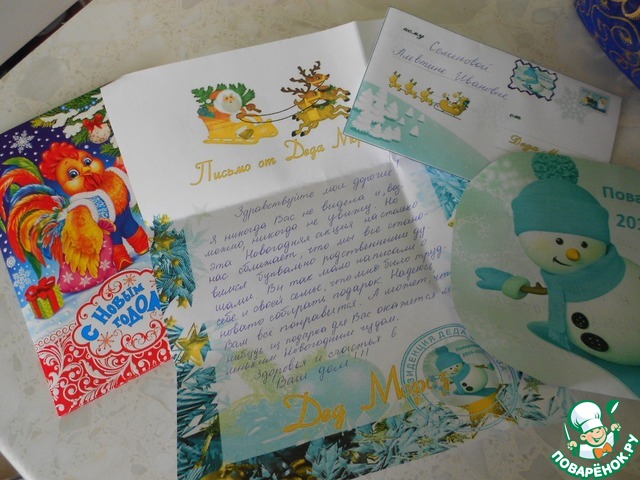 С Новым
годом
Письмо от Деда
Здравствуйте мои дорогие!
Я никогда Вас не видела и, воз-
можно, никогда не увижу. Но
эта Новогодняя акция настолько
нас сближает, что мы все стано-
вимся буквально родственными ду
шами. Вы так мало написали о
себе и своей семье, что мне было труд-
новато собирать подарок. Надеюсь
Вам все понравится. А может что
нибудь из подарка для Вас окажется
Новогодним чудом.
Здоровья и счастья в
Ваш дом!!!
Дед Мороз
РЕЗИДЕНЦИЯ ДЕДА
кому
Семеновой
Алевтине Ивановне
от
Деда
Пова
201
ПОВАРЁНОК.РУ